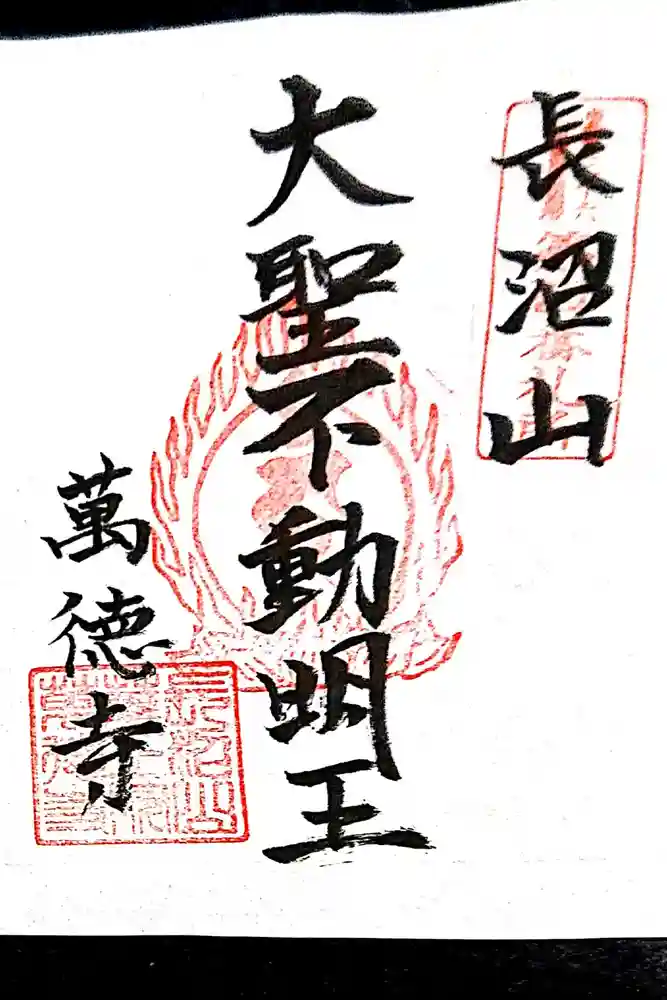 長沼山
大聖不動明王
萬德寺